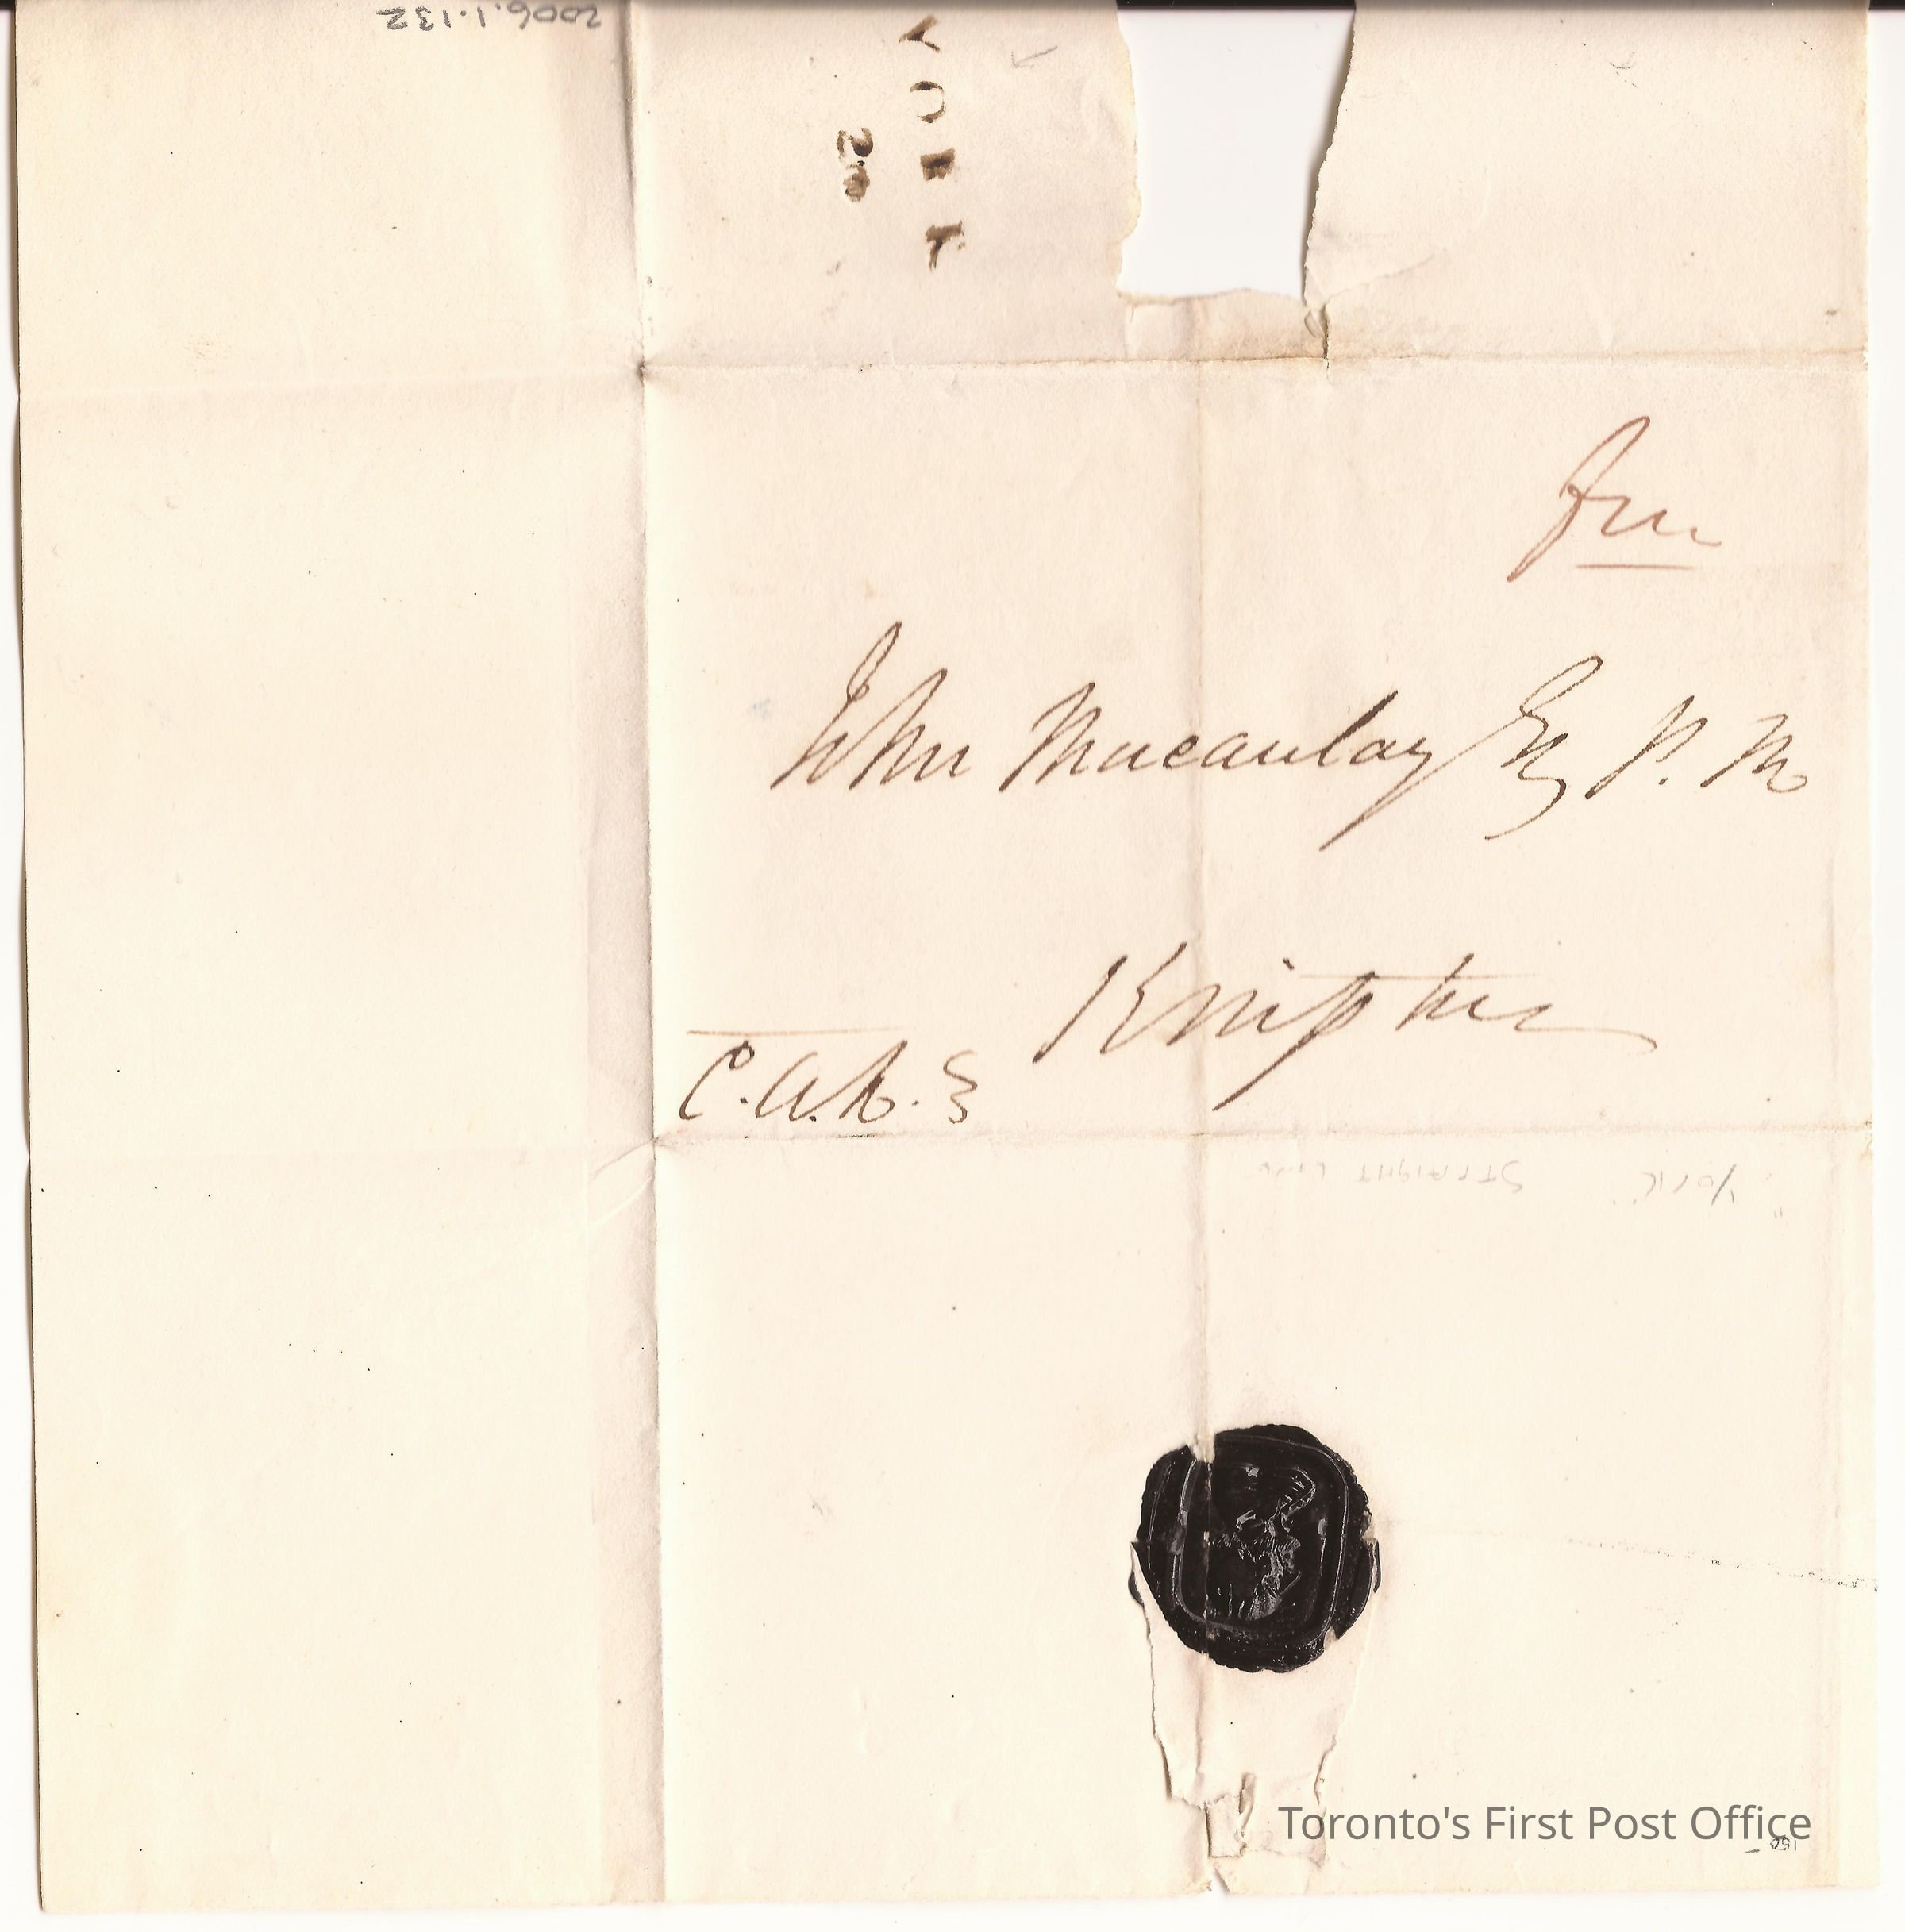 2006.1.132
YORK
free
John Macaulay Esq P. M
Kingston
C. A. H.
"YORK" STRAIGHT LINE
Toronto's First Post Office
150